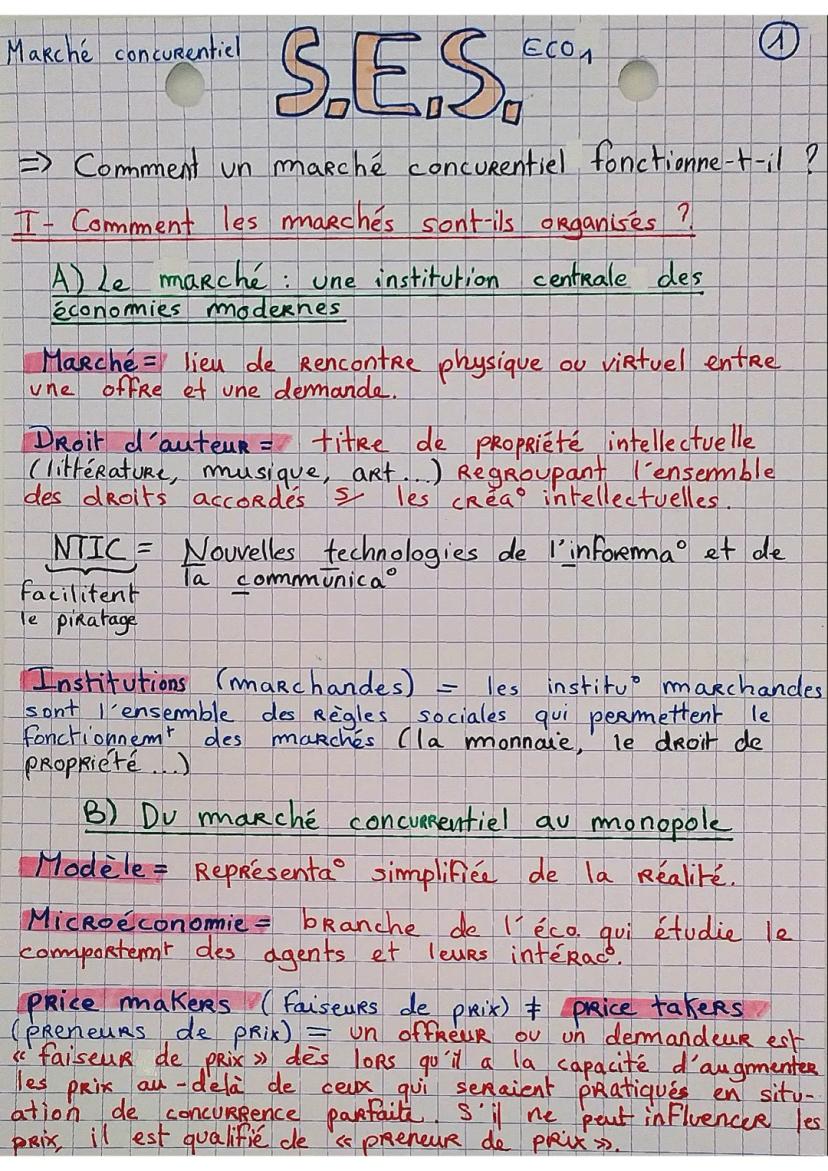 Marché concurentiel S.E.S. ECO1 1
=> Comment un marché concurentiel fonctionne-t-il ?
I- Comment les marchés sont-ils organisés ?
A) Le marché : une institution centrale des
économies modernes
Marché = lieu de rencontre physique ou virtuel entre
une offre et une demande.
Droit d'auteur = titre de propriété intellectuelle
(littérature, musique, art...) regroupant l'ensemble
des droits accordés s/ les créa° intellectuelles.
NTIC = Nouvelles technologies de l'informa° et de
la communica°
facilitent
le piratage
Institutions (marchandes) = les institu° marchandes
sont l'ensemble des règles sociales qui permettent le
fonctionnemt des marchés (la monnaie, le droit de
propriété...)
B) Du marché concurrentiel au monopole
Modèle = représenta° simplifiée de la réalité.
Microéconomie = branche de l'éco. qui étudie le
comportemt des agents et leurs intérac°.
price makers (faiseurs de prix) ≠ price takers
(preneurs de prix) = un offreur ou un demandeur est
« faiseur de prix » dès lors qu'il a la capacité d'augmenter
les prix au-delà de ceux qui seraient pratiqués en situ-
ation de concurrence parfaite. S'il ne peut influencer les
prix, il est qualifié de « preneur de prix ».